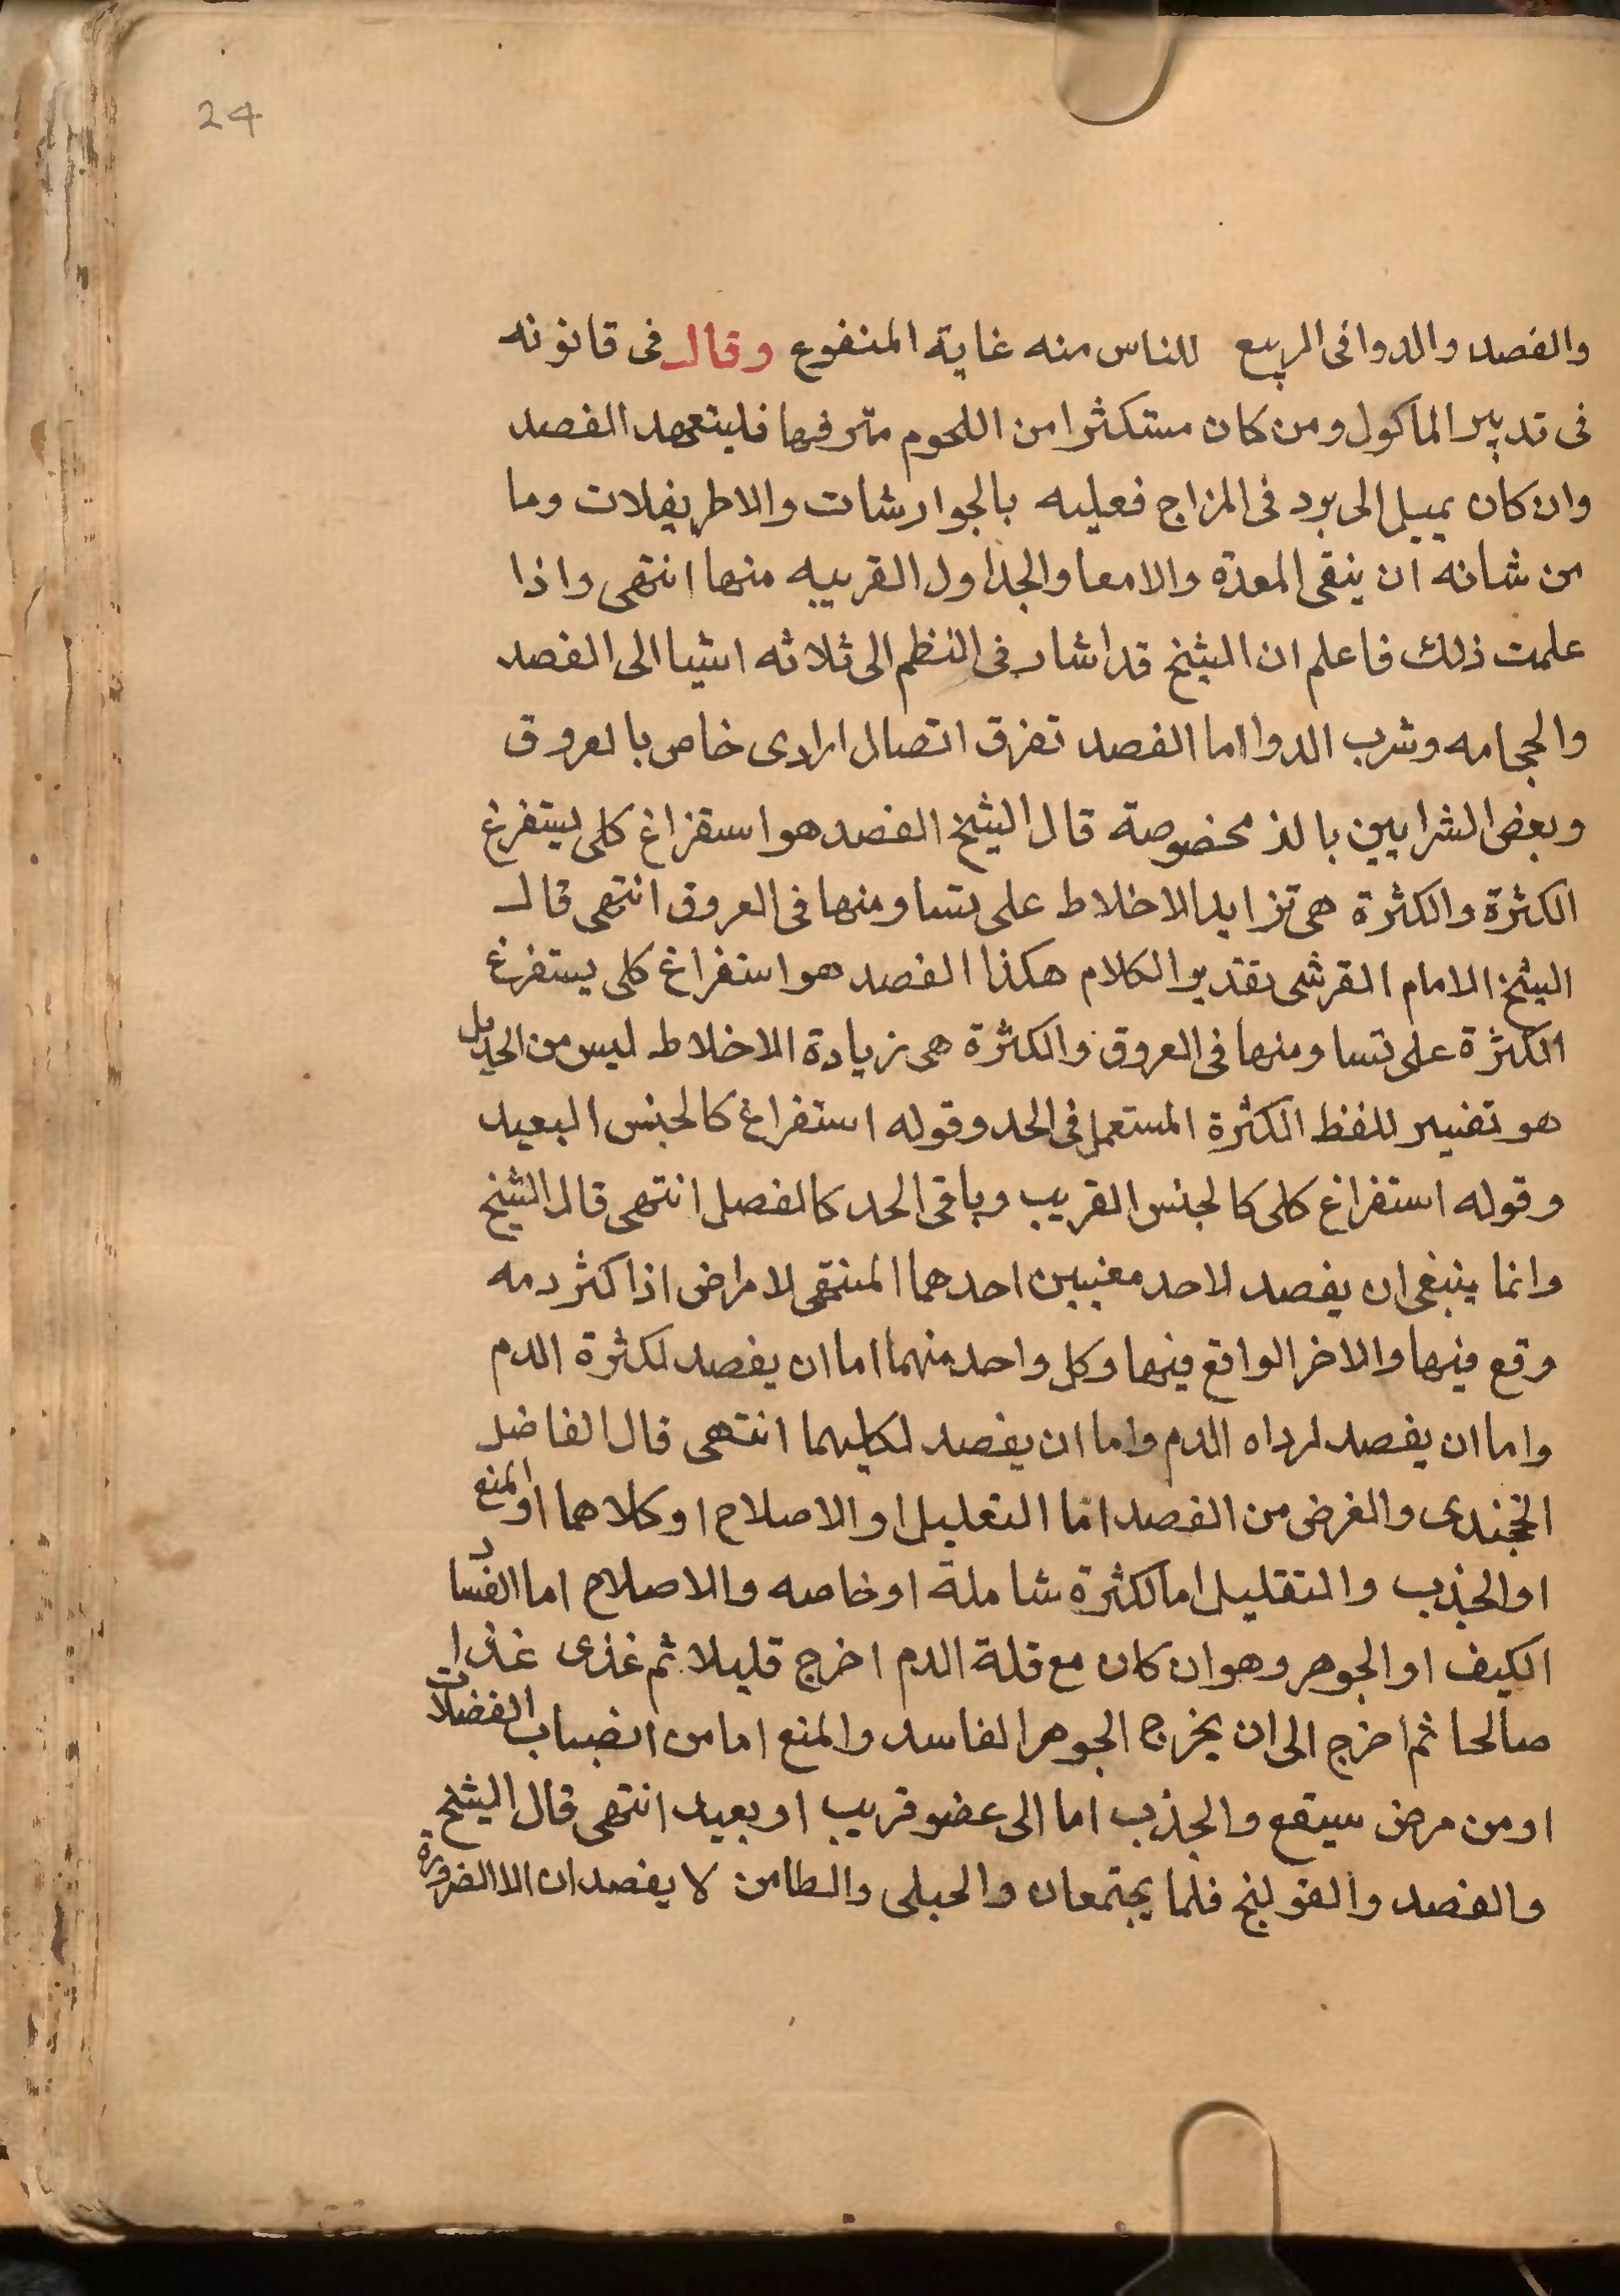 24
والفصد والدوا فى الربيع للناس منه غاية المنفوع وقال فى قانونه
فى تدبير الماكول ومن كان مستكثرا من اللحوم مترفها فليتعهد الفصد
وان كان يميل الى برد فى المزاج فعليه بالجوارشات والاطريفلات وما
من شانه ان ينقى المعدة والامعا والجداول القريبه منها انتهى واذا
علمت ذلك فاعلم ان الشيخ قد اشار فى النظم الى ثلاثه اشيا الى الفصد
والحجامه وشرب الدوا اما الفصد تفرق اتصال ارادى خاص بالعروق
وبعض الشرايين بالذ مخصوصة قال الشيخ الفصد هو استفراغ كلى يستفرغ
الكثرة والكثرة هى تزايد الاخلاط على تساو منها فى العروق انتهى قال
الشيخ الامام القرشى تقدير الكلام هكذا الفصد هو استفراغ كلى يستفرغ
الكثرة على تساو منها فى العروق والكثرة هى زيادة الاخلاط ليس من الحد بل
هو تفسير للفظ الكثرة المستعمل فى الحد وقوله استفراغ كالجنس البعيد
وقوله استفراغ كلى كالجنس القريب وباقى الحد كالفصل انتهى قال الشيخ
وانما ينبغى ان يفصد لاحد معنيين احدهما المتهى لامراض اذا كثر دمه
وقع فيها والاخر الواقع فيها وكل واحد منهما اما ان يفصد لكثرة الدم
واما ان يفصد لرداه الدم واما ان يفصد لكليهما انتهى قال الفاضل
الخجندى والغرض من الفصد اما التعليل او الاصلاح او كلاهما او المنع
او الجذب والتقليل اما لكثرة شاملة او خاصه والاصلاح اما الفساد
الكيف او الجوهر وهو ان كان مع قلة الدم اخرج قليلا ثم غذى غذا
صالحا ثم اخرج الى ان يخرج الجوهر الفاسد والمنع اما من انصباب الفضلات
او من مرض سيقع والجذب اما الى عضو قريب او بعيد انتهى قال الشيخ
والفصد والقولنج فلما يجتمعان والحبلى والطامن لا يفصدان الا الضرورة